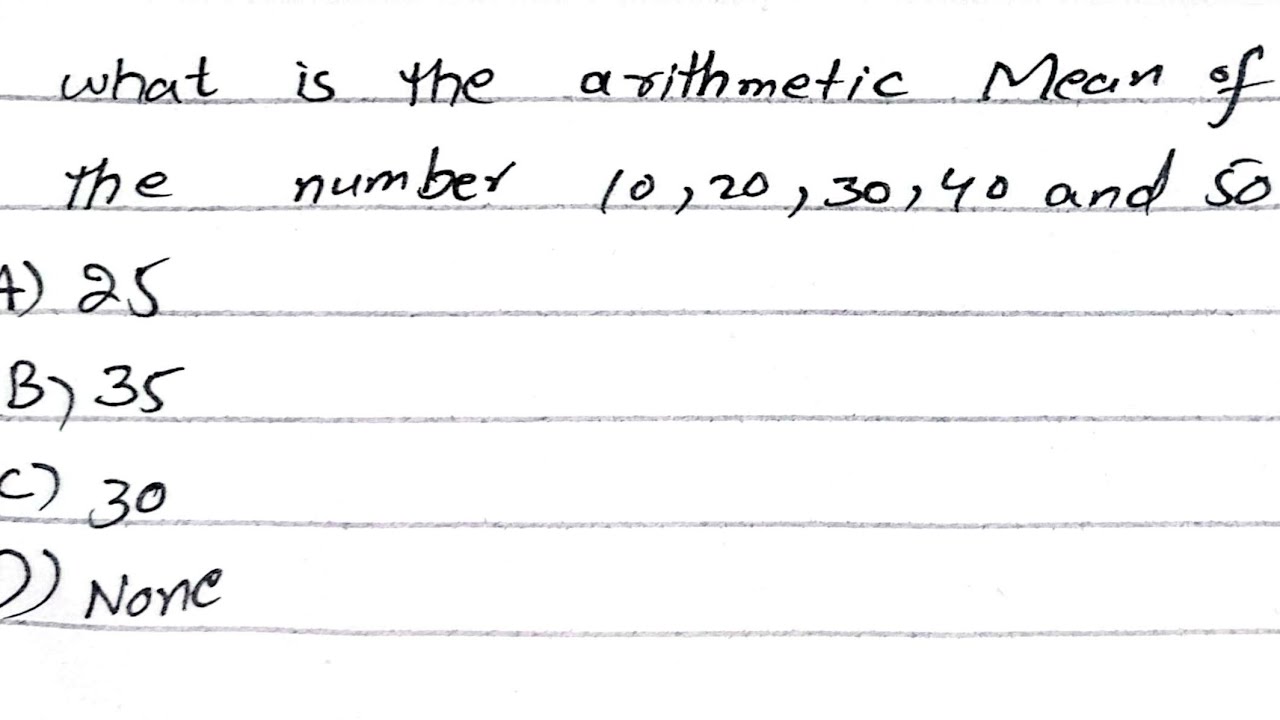 what is the arithmetic Mean of
the number 10, 20, 30, 40 and 50
A) 25
B) 35
C) 30
D) None